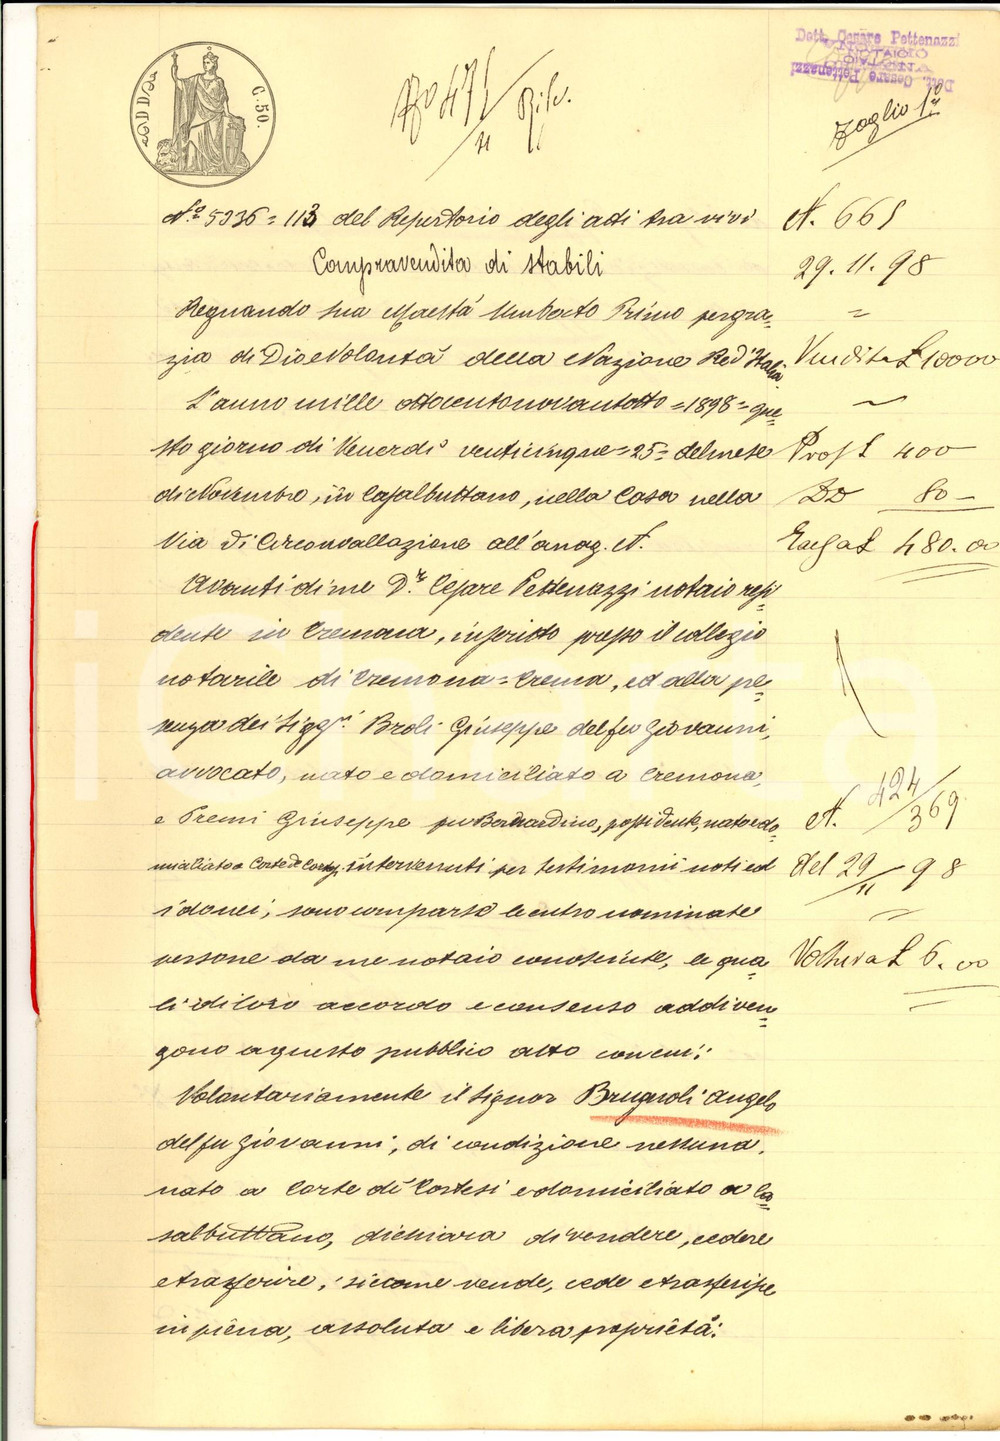 Dott. Cesare Pettenazzi
NOTAIO
Dott. Cesare Pettenazzi
C. 50.
No 471
11
Foglio 1o
No 5336 = 113 del Repertorio degli atti tra vivi
N. 661
Compravendita di stabili
29. 11. 98
Regnando sua Maestà Umberto Primo per gra=
zia di Dio e Volontà della Nazione Re d'Italia
Vendita £ 10000
L'anno mille ottocentonovantotto = 1898 = que=
sto giorno di Venerdì venticinque = 25 = del mese
Prop £ 400
di Novembre, in Casalbuttano, nella Casa nella
DD 80 –
Via di Circonvallazione all'anag. N.
£ 480.00
Avanti di me D.r Cesare Pettenazzi notaio resi=
dente in Cremona, inscritto presso il collegio
notarile di Cremona = Crema, ed alla pre=
senza dei Sigg.ri Broli Giuseppe del fu Giovanni,
avvocato, nato e domiciliato a Cremona,
e Premi Giuseppe fu Bernardino, possidente, nato e do=
N. 424/369
miciliato a Corte de Cortesi, intervenuti per testimonii noti ed
del 29/11 98
idonei; sono comparse le entro nominate
persone da me notaio conosciute, le qua=
Voltura £ 6.00
li di loro accordo e consenso addiven=
gono a questo pubblico atto con cui:
Volontariamente il Signor Brugnoli Angelo
del fu Giovanni, di condizione nessuna,
nato a Corte de' Cortesi e domiciliato a Ca=
salbuttano, dichiara di vendere, cedere
e trasferire, siccome vende, cede e trasferisce
in piena, assoluta e libera proprietà:
iCharta